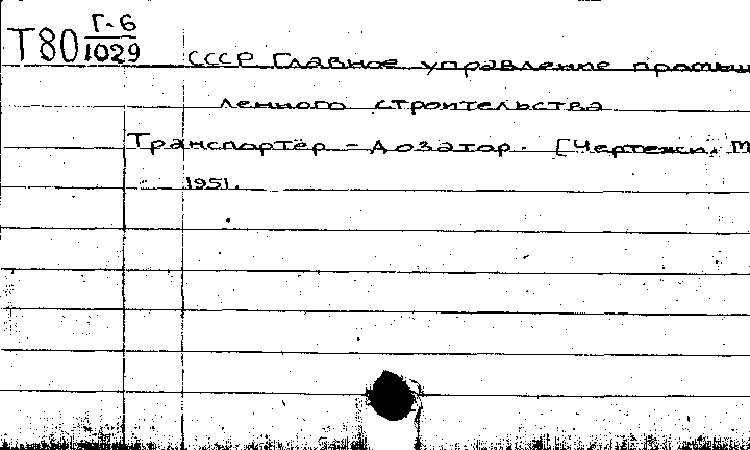 Т80 Г-6
1029
СССР Главное управление промыш
ленного строительства
Транспортёр - дозатор. [Чертежи. М
1951.